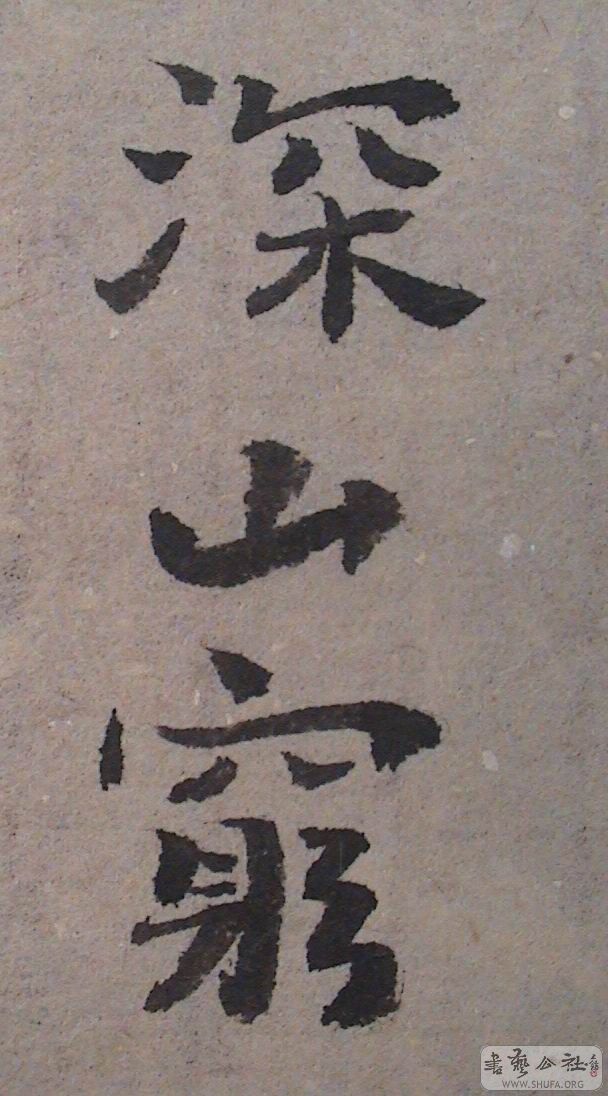 深山窮
書藝公社
WWW.SHUFA.ORG